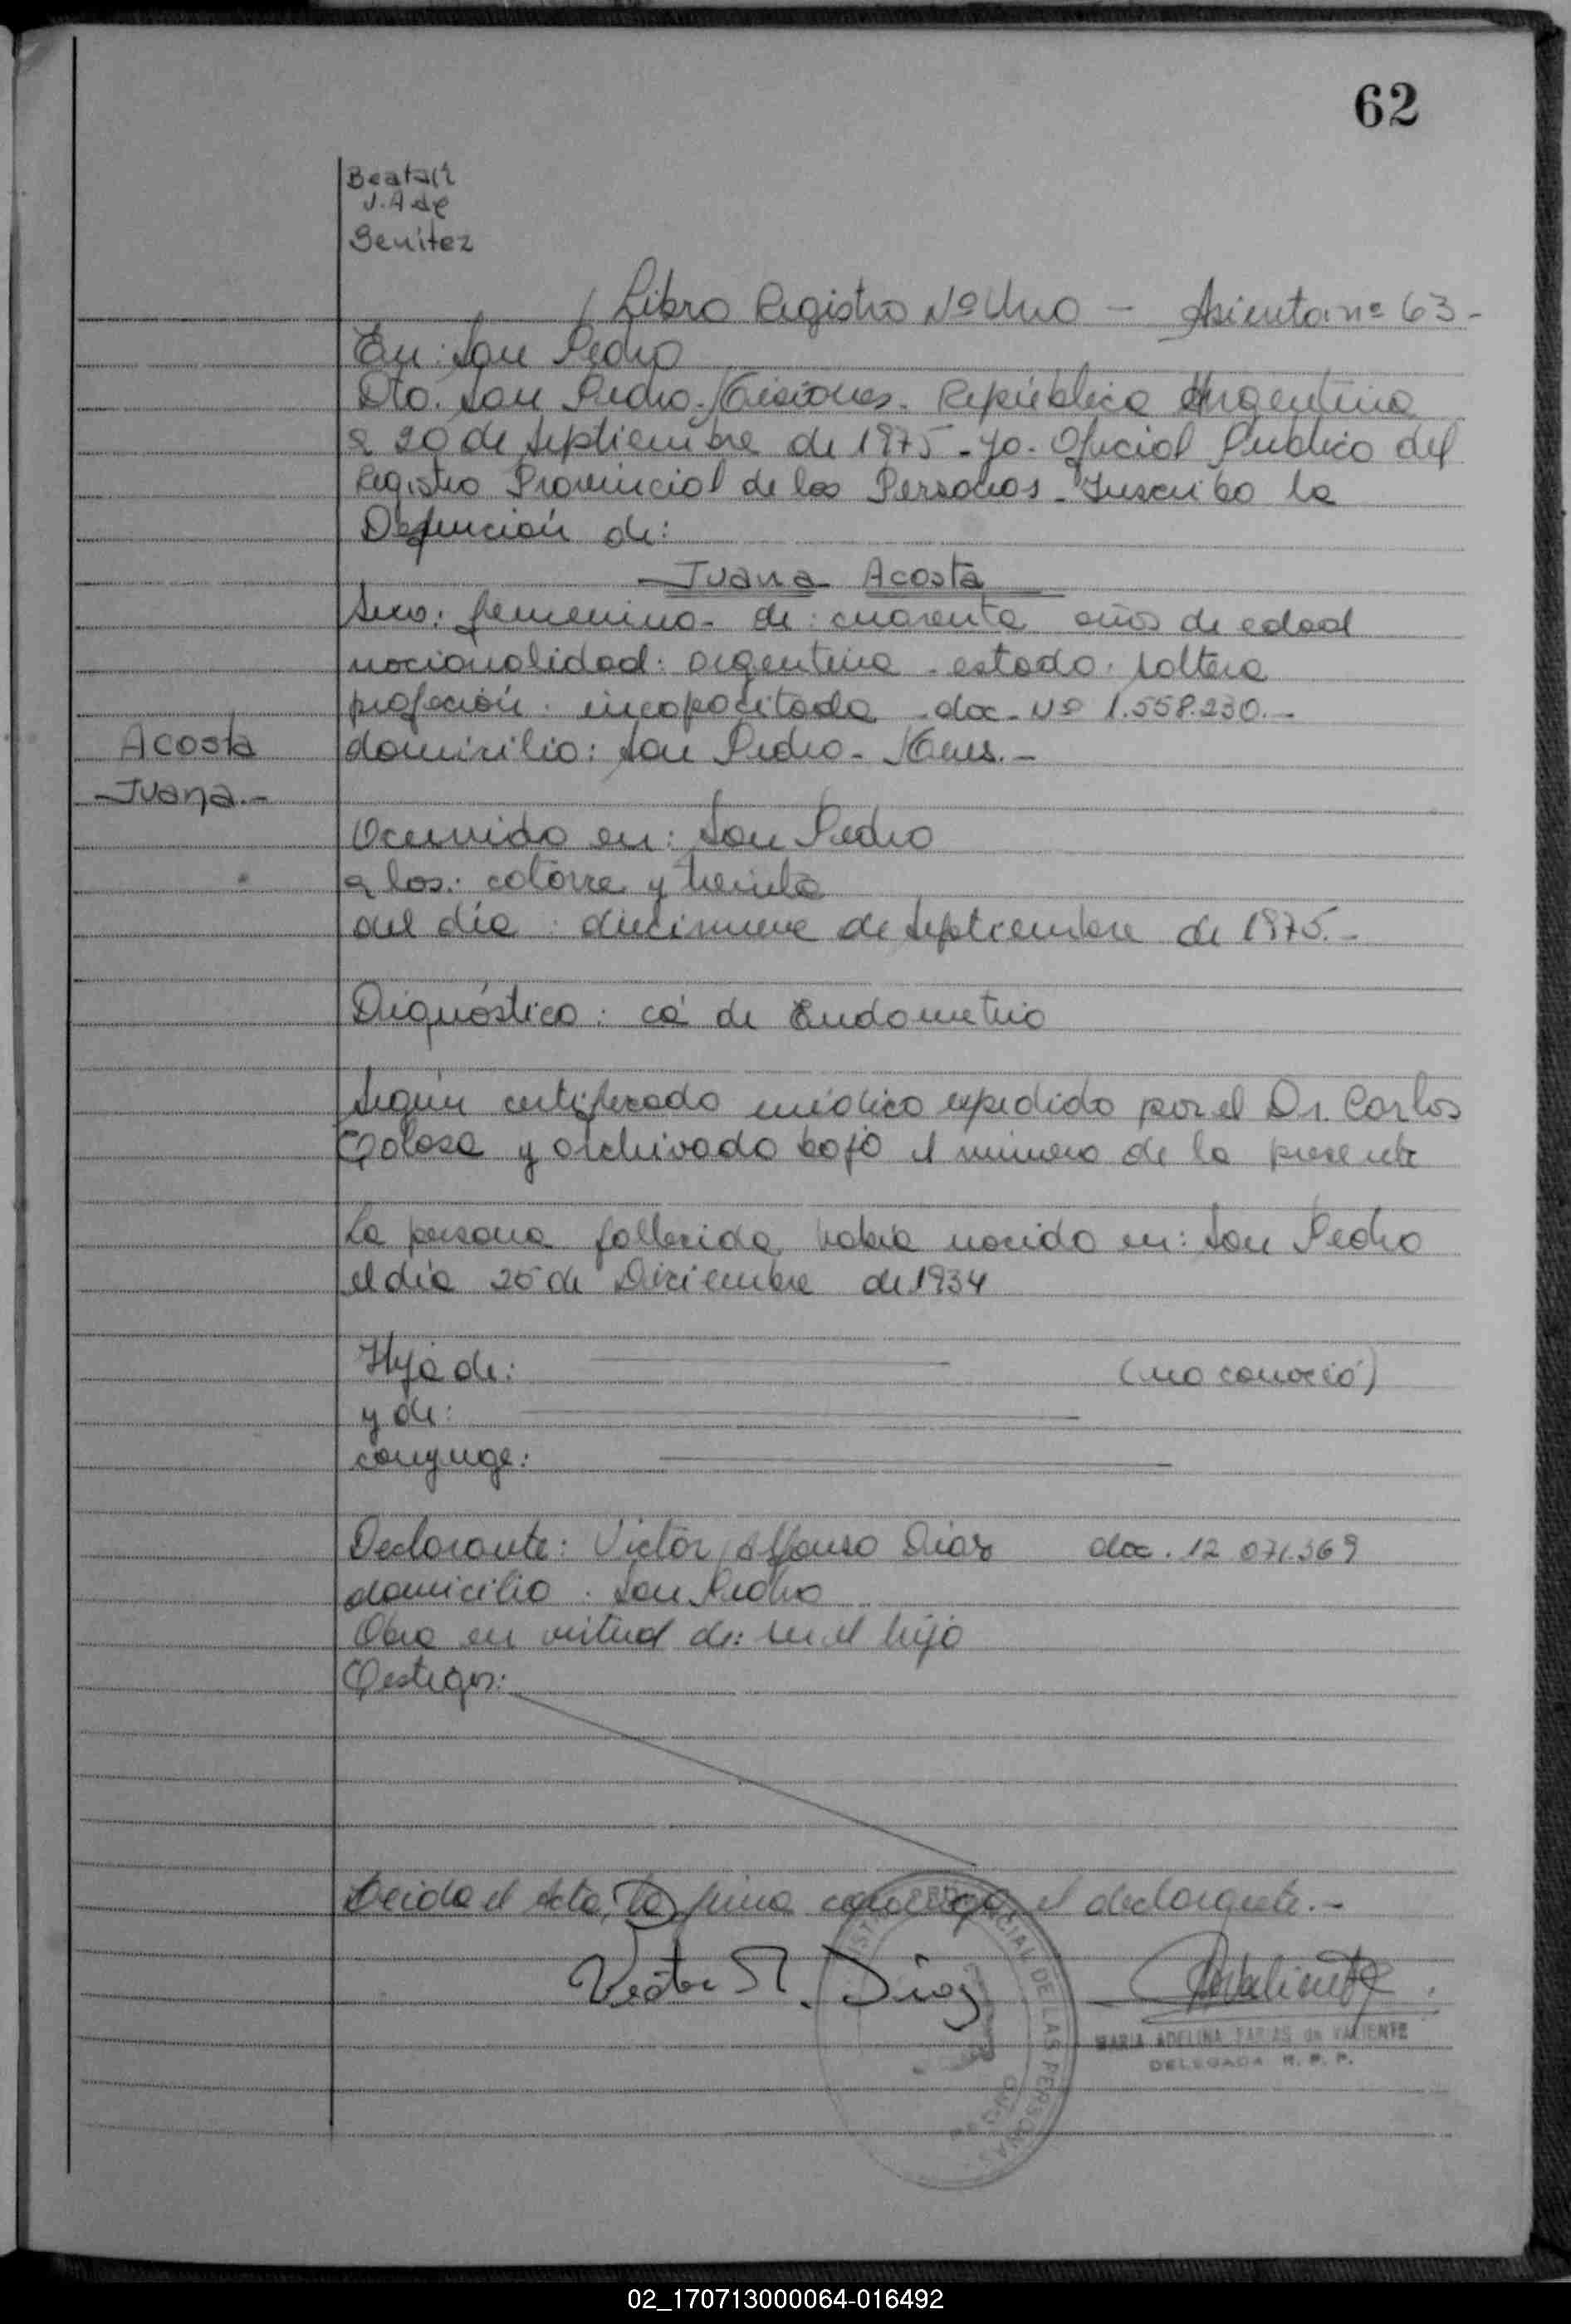 62
J. A de
Benitez
Libro Registro Nº Uno - Asiento: nº 63-
En: San Pedro
Dto. San Pedro. Misiones. República Argentina
a 20 de Septiembre de 1975 - Yo. Oficial Público del
Registro Provincial de las Personas - Inscribo la
Defunción de:
Juana Acosta
Sexo: femenino - de: cuarenta años de edad
nacionalidad: argentina - estado: soltera
profeción: incapacitada - doc - Nº 1.558.230.-
Acosta
Juana.-
domicilio: San Pedro - Mnes.-
Ocurrido en: San Pedro
a los: catorce y treinta
del día: diecinueve de Septiembre de 1975.-
Diagnóstico: cá de Endometrio
Según certificado médico expedido por el Dr. Carlos
y archivado bajo el número de la presente
La persona fallecida había nacido en: San Pedro
el día 25 de Diciembre de 1934
Hija de: (no conoció)
y de:
conyuge:
Declarante: Victor Alfonso Diaz doc. 12 071.369
domicilio: San Pedro
Obra en virtud de: ser el hijo
Testigos:
Leida el Acta, la firma conmigo, el declarante.-
Victor A. Diaz
MARIA ADELINA FARIAS de VALIENTE
DELEGADA R. P. P.
PROVINCIAL DE LAS PERSONAS
02_170713000064-016492